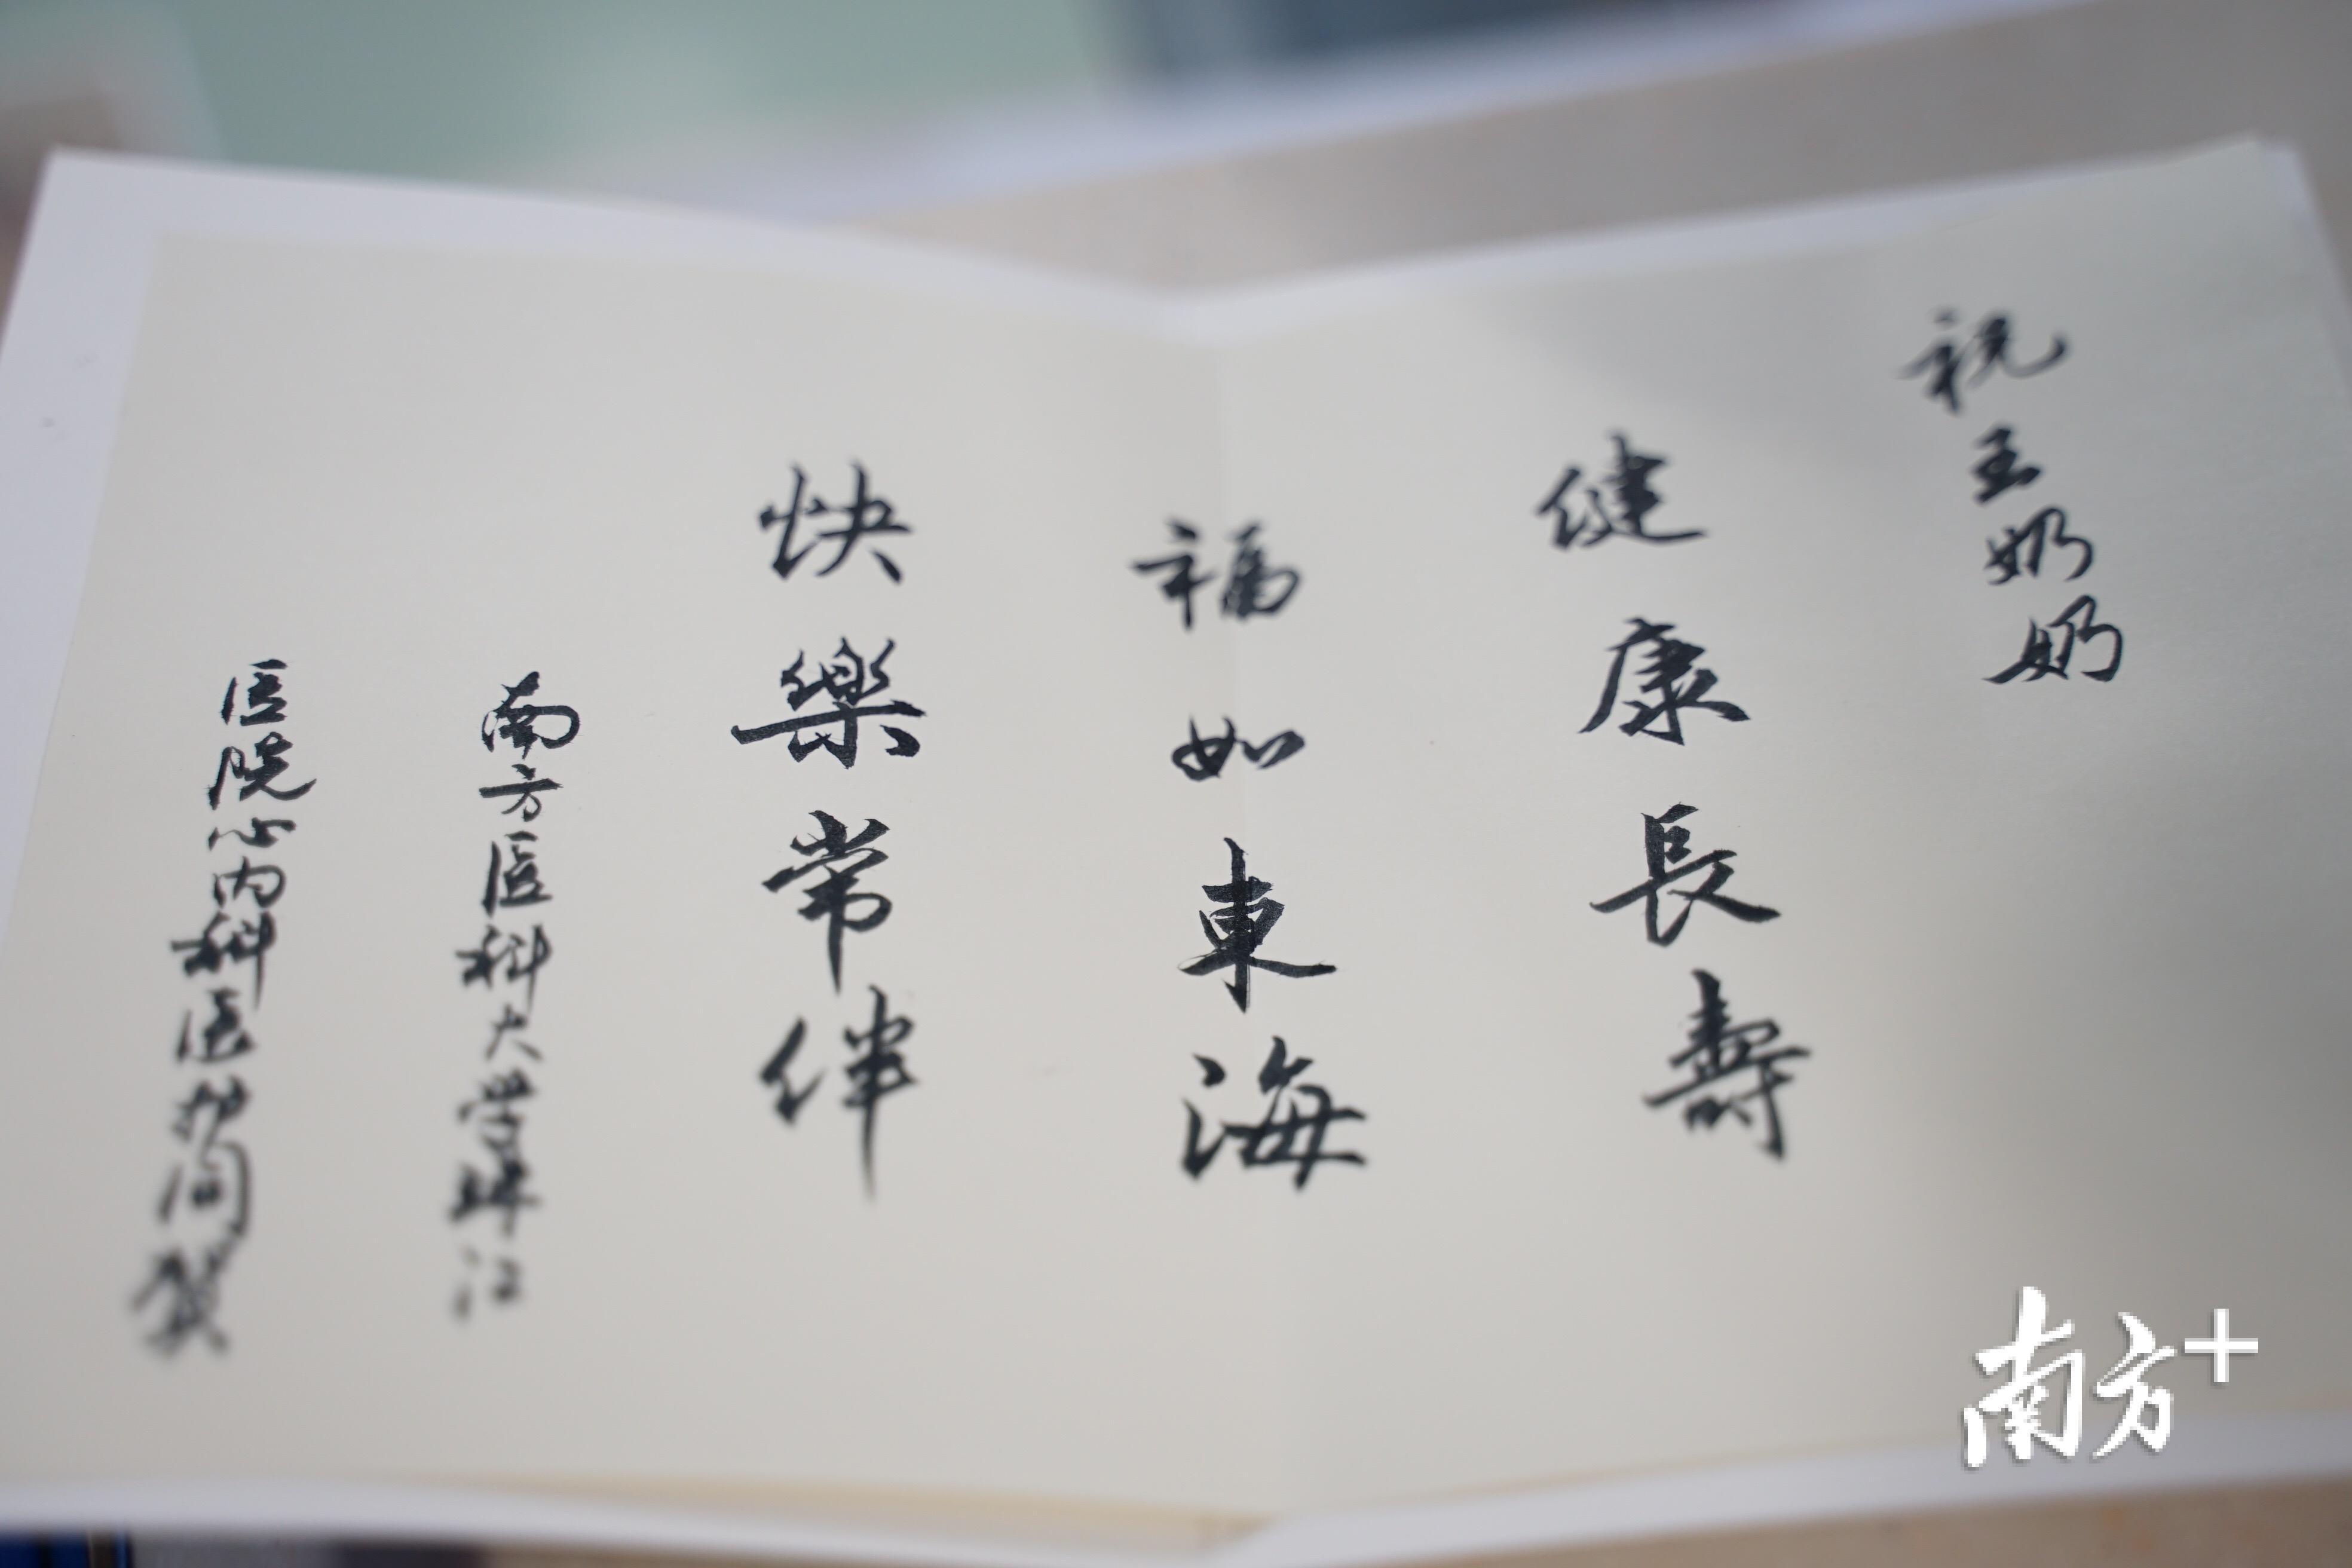 祝王奶奶
健康長壽
福如東海
快樂常伴
南方医科大学珠江
医院心内科医护同贺
南方+